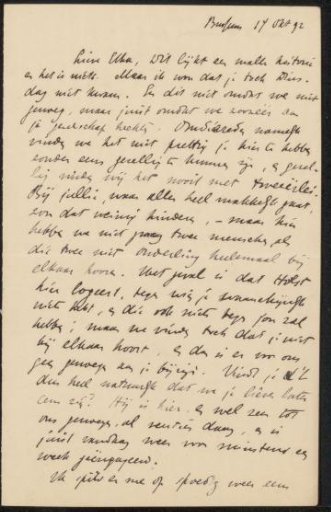 Bussum 17 Okt 92
Lieve Elba, Dit lijkt een malle historie
en het is niets. Maar ik wou dat je toch Dins-
dag niet kwam. En dit niet omdat we niet
genoeg, maar juist omdat we zooveel aan
je gezelschap hebben. Omdat namelijk
vinden we het niet prettig je hier te hebben
zonder eens gezellig te kunnen zijn, en gezel-
lig vinden wij het nooit met tweeërlei.
Bij jullie, waar alles heel makkelijk gaat,
zou dat weinig hinderen, – maar hier
hebben we niet graag twee menschen, als
die twee niet onderling heelemaal bij
elkaar hooren. Het geval is dat
hier logeert, tegen wie je waarschijnlijk
niets hebt, en die ook niets tegen jou zal
hebben; maar we vinden toch dat je niet
bij elkaar hoort, en dan is er voor ons
geen genoegen aan je bijzijn. Vindt je 't
dus heel natuurlijk dat we je liever later
eens zien? Hij is hier, en wel zeer tot
ons genoegen, al eenige dagen, en is
juist vandaag weer voor minstens een
week geëngageerd.
er me op spoedig weer een